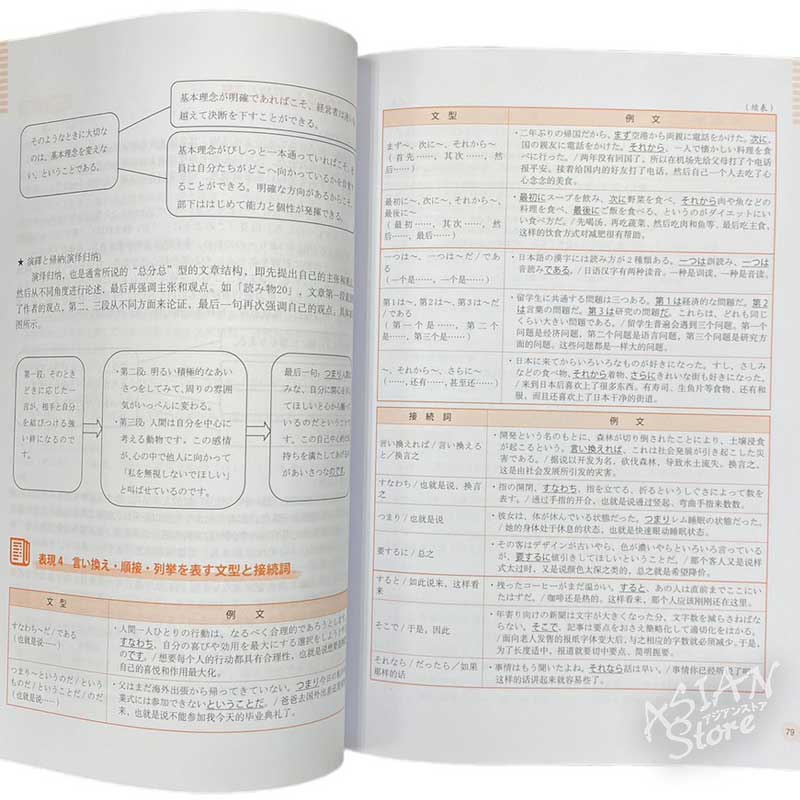 基本理念が明確であればこそ、経営者は
越えて決断を下すことができる。
そのようなときに大切な
のは、基本理念を変えな
い、ということである。
基本理念がびしっと一本通っていればこそ、
員は自分たちがどこへ向かっているかを自覚
ることができる。明確な方向があるからこそ、
部下ははじめて能力と個性が発揮できる。
★ 演繹と帰納(演绎归纳)
演绎归纳，也是通常所说的“总分总”型的文章结构，即先提出自己的主张和
然后从不同角度进行论述，最后再强调主张和观点。如「読み物20」，文章第一段
了作者的观点，第二、三段从不同方面来论证，最后一句再次强调自己的观点，具体
图所示。
第一段: そのとき
どきに応じた一
言が、相手と自分
を結びつける強
い絆になるので
す。
・第二段: 明るい積極的なあい
さつをしてみて、周りの雰囲
気がいっぺんに変わる。
・第三段: 人間は自分を中心に
考える動物です。この感情
が、心の中で他人に向かって
「私を無視しないでほしい」
と叫ばせているのです。
最後一句: つまり人
みな、自分に関心を
てほしいと心から願っ
いるのだということで
す。この自己中心的
持ちを満たしてあげる
があいさつなのです。
表現4 言い換え・順接・列挙を表す文型と接続詞
文型 例文
すなわち~だ/である
(也就是说……)
・人間一人ひとりの行動は、なるべく合理的であろうとします。
すなわち、自分の喜びや効用を最大にする選択をしようとする
のです。/ 想要每个人的行动都具有合理性，也就是说想要追求
自己的喜悦和作用最大化。
つまり~というのだ/という
ものだ/ということだ/のだ
(也就是说……)
・父はまだ海外出張から帰ってきていない。つまり今日の
業式には参加できないということだ。/ 爸爸去国外出差还没
来，也就是说不能参加我今天的毕业典礼了。
(续表)
文型 例文
まず~、次に~、それから~
(首先……，其次……，然
后……)
・二年ぶりの帰国だから、まず空港から両親に電話をかけた。次に、
国の親友に電話をかけた。それから、一人で懐かしい料理を食
べに行った。/ 两年没有回国了，所以在机场先给父母打了个电话
报平安。接着给国内的好友打了电话，然后自己一个人去吃了心
心念念的美食。
最初に~、次に~、それから~、
最後に~
(最初……，其次……，然
后……，最后……)
・最初にスープを飲み、次に野菜を食べ、それから肉や魚などの
料理を食べ、最後にご飯を食べる、というのがダイエットにい
い食べ方だ。/ 先喝汤，再吃蔬菜，然后吃肉和鱼等，最后吃主食，
这样的饮食方式对减肥很有帮助。
一つは~、一つは~だ/であ
る
(一个是……，一个是……)
・日本語の漢字には読み方が2種類ある。一つは訓読み、一つは
音読みである。/ 日语汉字有两种读音。一种是训读，一种是音读。
第1は~、第2は~、第3は~だ
/である
(第一个是……，第二个
是……，第三个是……)
・留学生に共通する問題は三つある。第1は経済的な問題だ。第2
は言葉の問題だ。第3は研究の問題だ。これらは、どれも同じ
くらい大きい問題である。/ 留学生普遍会遇到三个问题。第一个
问题是经济问题，第二个问题是语言问题，第三个问题是研究方
面的问题。这些问题都是一样大的问题。
~、それから~、さらに~
(……，还有……，甚至还……)
・日本に来てからいろいろなものが好きになった。すし、さしみ
などの食べ物、それから着物、さらにきれいな街も好きになった。
/ 来到日本后喜欢上了很多东西。有寿司、生鱼片等食物、还有和
服，而且还喜欢上了日本干净的街道。
接続詞 例文
言い換えれば/言い換える
と/换言之
・開発という名のもとに、森林が切り倒されたことにより、土壌浸食
が起こるという。言い換えれば、これは社会発展が引き起こした災
害である。/ 据说以开发为名，砍伐森林，导致水土流失。换言之，
这是由社会发展所引发的灾害。
すなわち/也就是说、换言
之
・指の開閉、すなわち、指を立てる、折るというしぐさによって数を
表す。/ 通过手指的开合，也就是说通过竖起、弯曲手指来数数。
つまり/也就是说
・彼女は、体が休んでいる状態だった。つまりレム睡眠の状態だった。
/ 她的身体处于休息的状态，也就是快速眼动睡眠状态。
要するに/总之
・その客はデザインが古いやら、色が濃いやらといろいろ言っている
が、要するに値引きしてほしいということだ。/ 那个客人又是说样
式太过时，又是说颜色太深之类的，总之就是希望降价。
すると/如此说来，这样看
来
・残ったコーヒーがまだ温かい。すると、あの人は直前までここにい
たはずだ。/ 咖啡还是热的。这样看来，那个人应该刚刚还在这里。
そこで/于是，因此
・年寄り向けの新聞は文字が大きくなった分、文字数を減らさねばな
らない。そこで、記事は要点をおさえ簡略化して適切化をはかる。
/ 面向老人发售的报纸字体变大后，与之相应的字数就必须减少。于是，
为了长话适中，报道就要切中要点、简明扼要。
それなら/だったら/如果
那样的话
・事情はもう聞いたよね。それなら話は早い。/ 事情你已经听说了吧？
这样的话讲起来就容易些了。
79
ASIAN
アジアンストア
Store